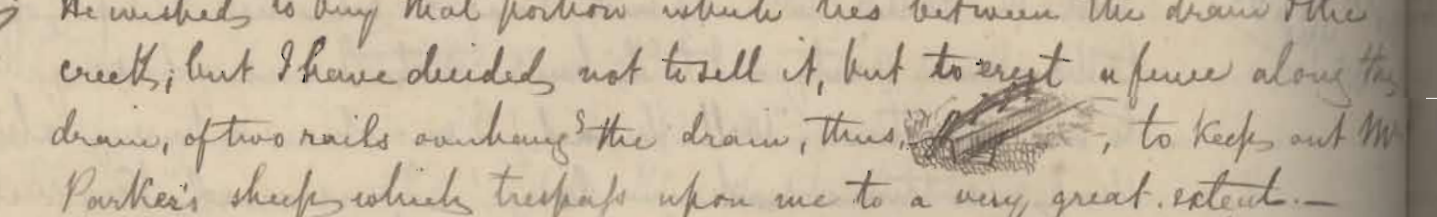 He wished to buy that portion which lies between the drain & the
creek; but I have decided not to sell it, but to erect a fence along the
drain, of two rails overhang<sup>g</sup> the drain, thus, , to keep out Mr
Parker's sheep which trespass upon me to a very great extent.—